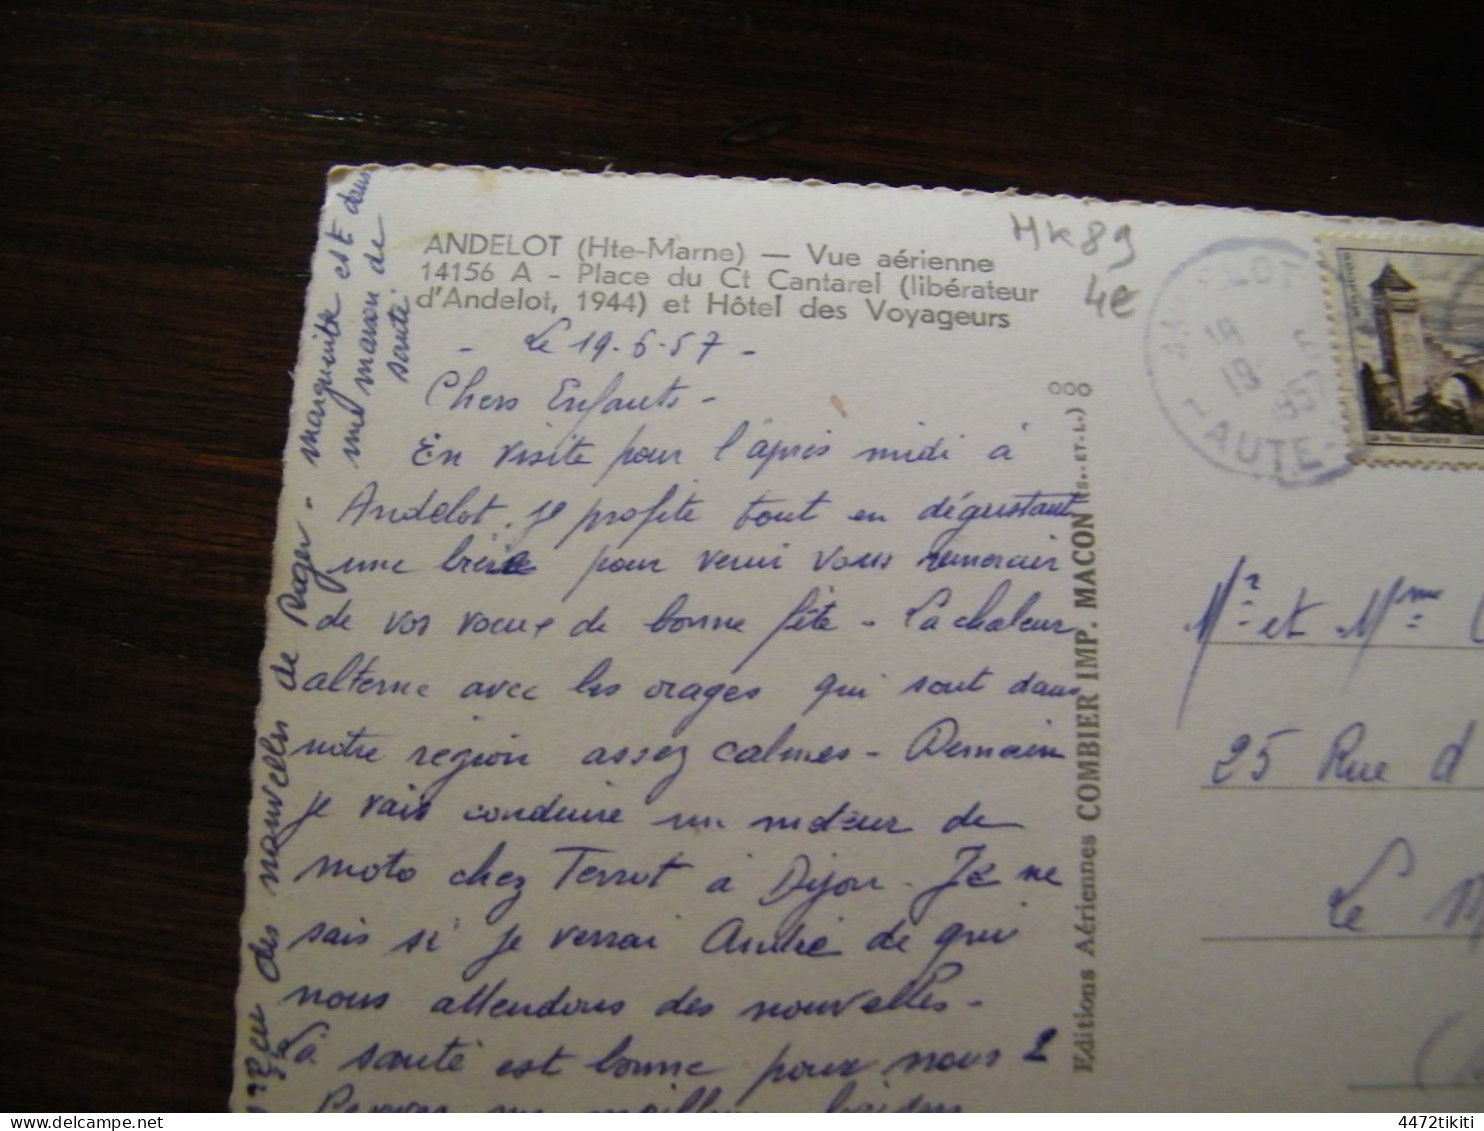 ANDELOT (Hte-Marne) — Vue aérienne
14156 A - Place du Ct Cantarel (libérateur
d'Andelot, 1944) et Hôtel des Voyageurs
HK89
4e
- Le 19.6.57 -
Chers Enfants -
En visite pour l'après midi à
Andelot. je profite tout en dégustant
une bière pour venir vous remercier
de vos voeux de bonne fête - La chaleur
alterne avec les orages qui sont dans
notre région assez calmes - Demain
je vais conduire un moteur de
moto chez Terrot à Dijon. Je ne
sais si je verrai André de qui
nous attendons des nouvelles -
La santé est bonne pour nous 2
Recevez un meilleur baisers
eu des nouvelles de Roger - marguerite est dans
une maison de
santé.
Editions Aériennes COMBIER IMP. MACON (S..ET.L.) ooo
19
957
AUTE-
Mr et Mme
25 Rue d
Le
4472tikiti